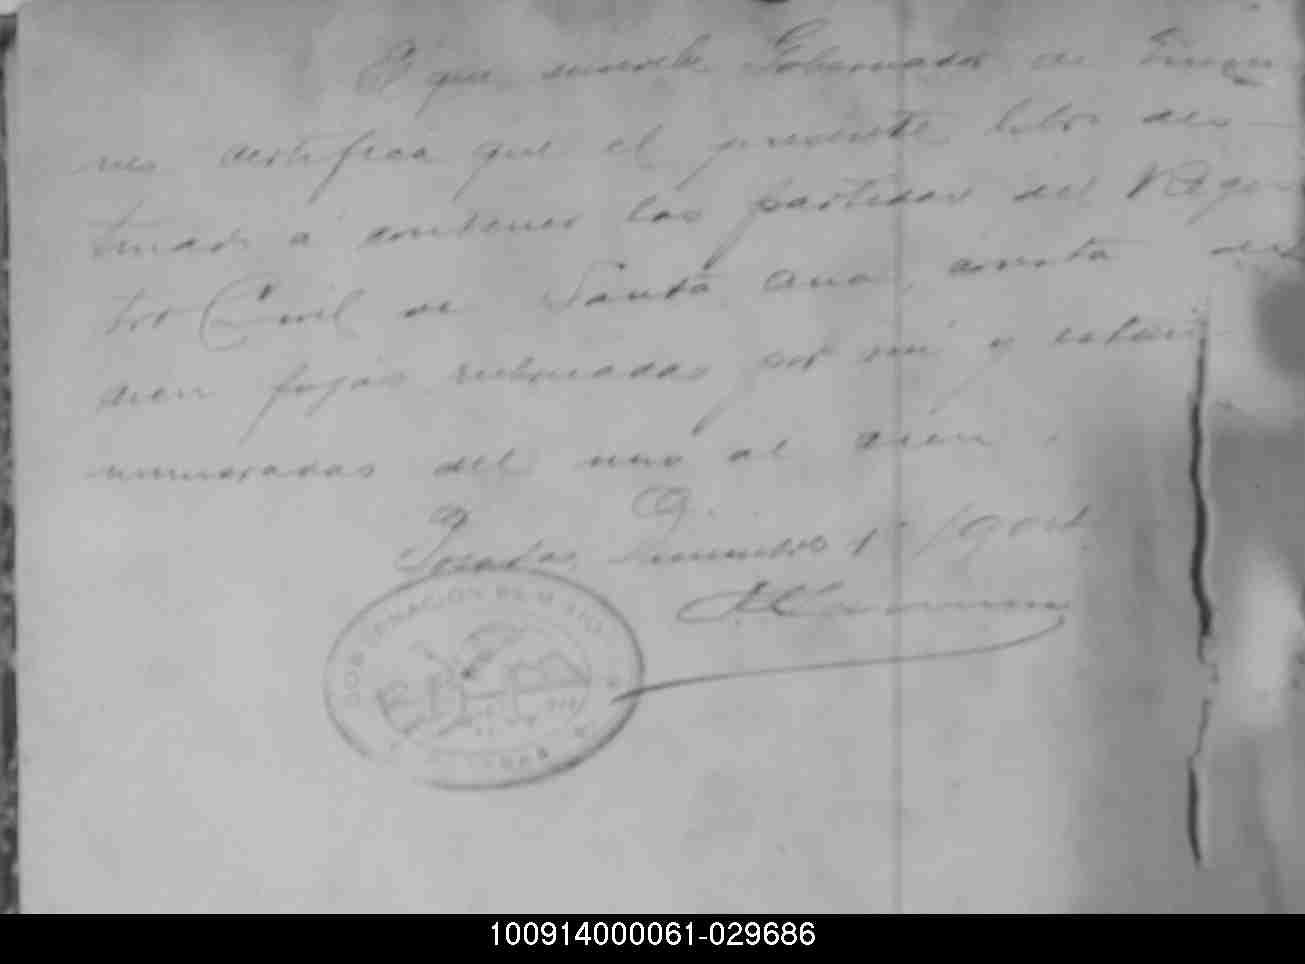 El que suscribe Gobernador de Mision
nes certifica que el presente libro des-
tinado á contener las partidas del Regis-
tro Civil de Santa Ana, consta de
cien fojas rubricadas por mi y están
numeradas del uno al cien.
Posadas, 1º
GOBERNACIÓN DE MISIONES
POSADAS
100914000061-029686